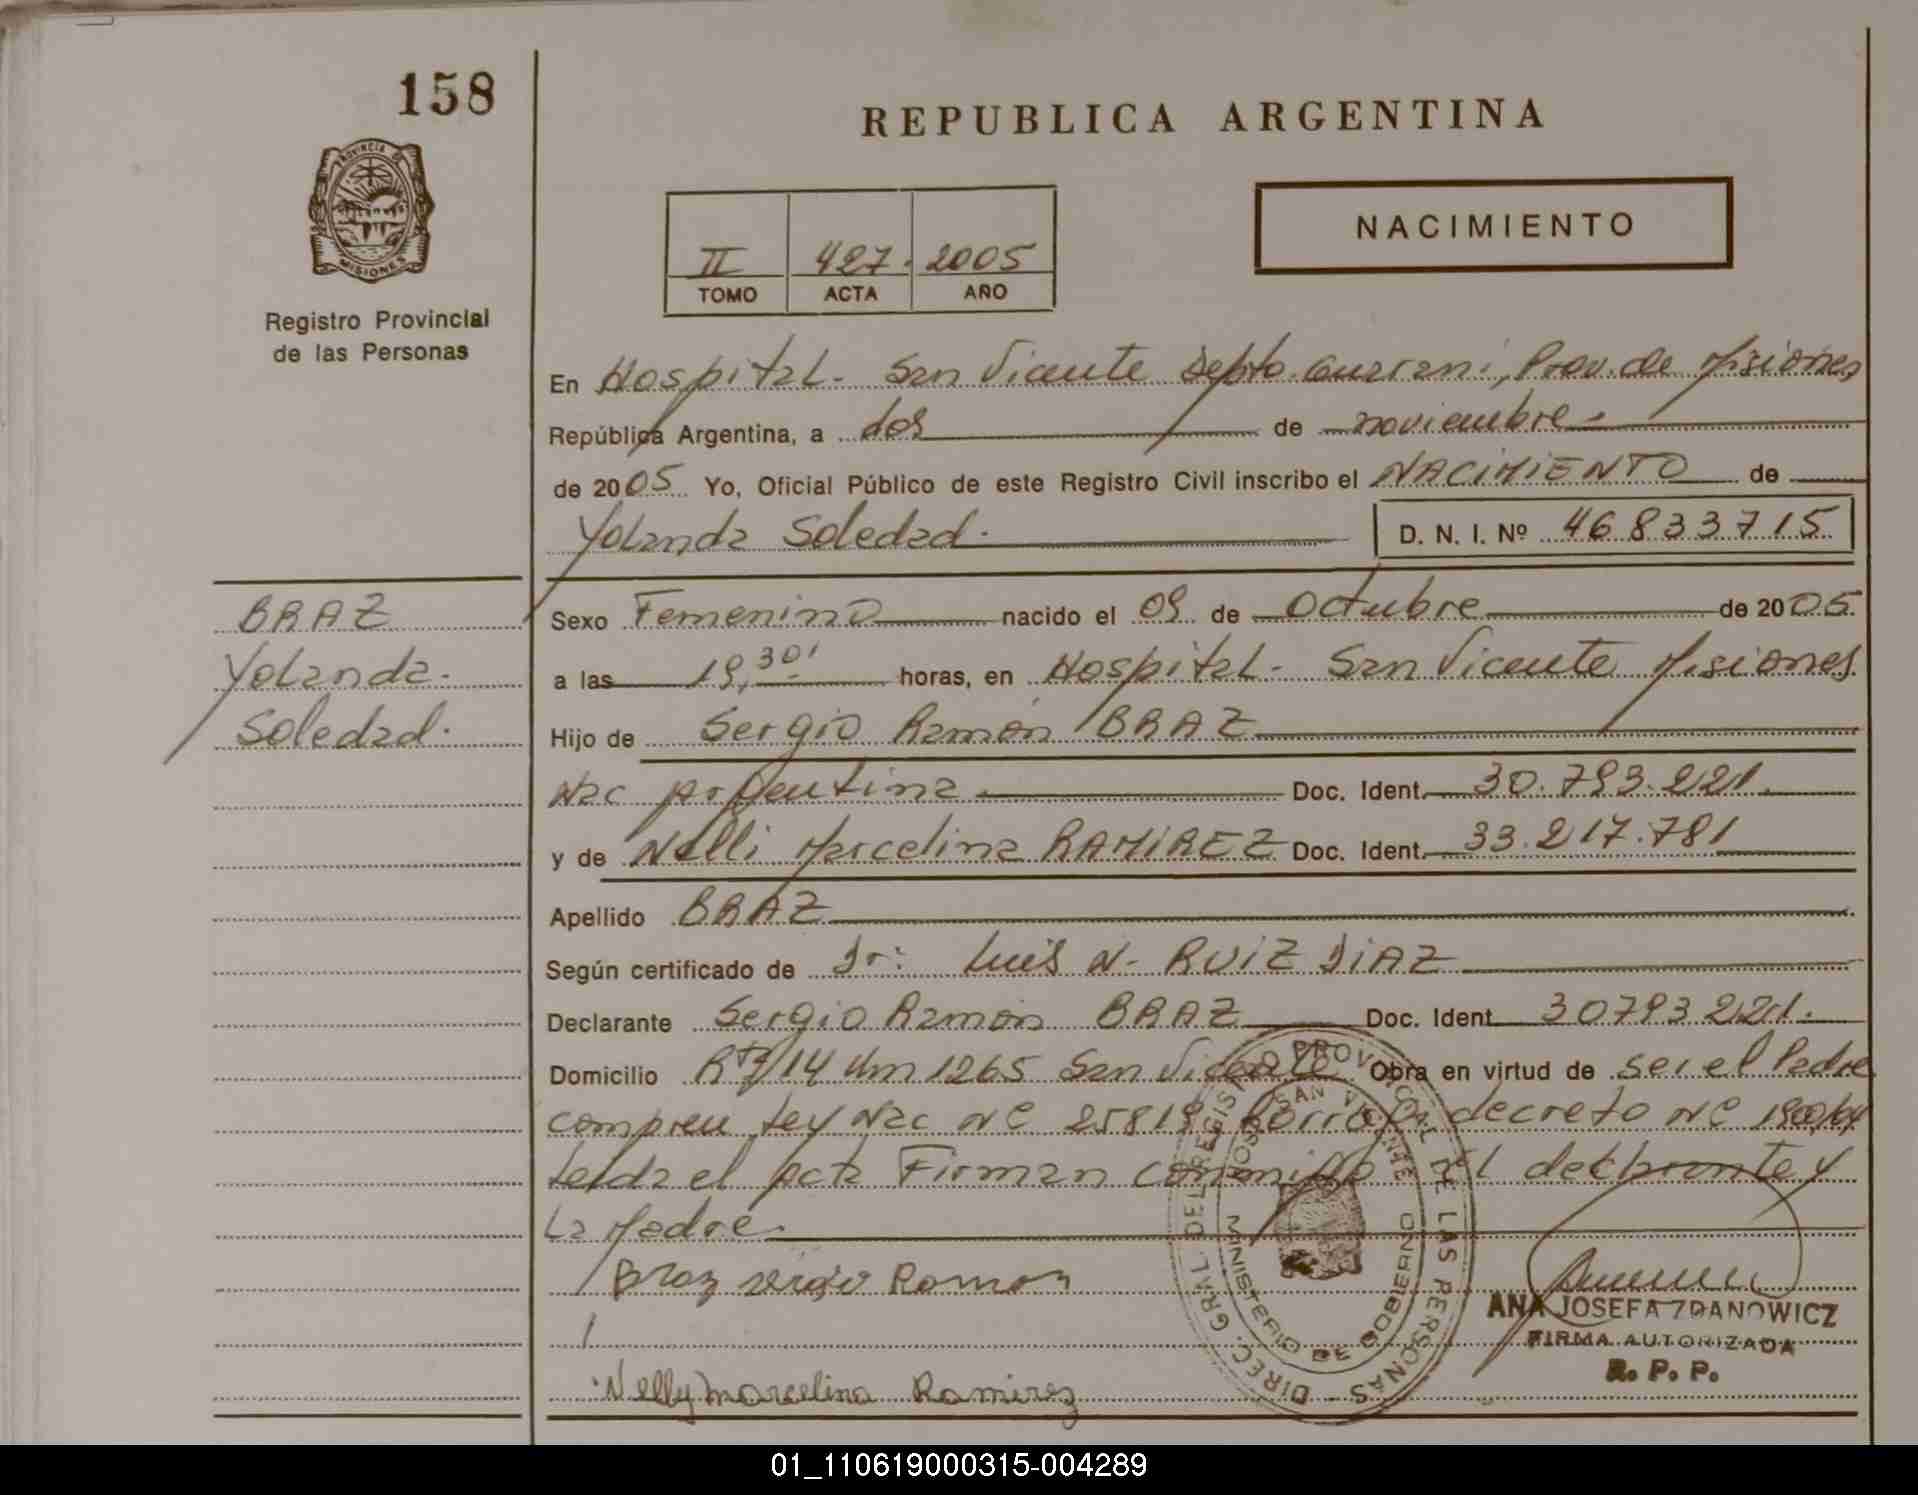 158
REPUBLICA ARGENTINA
PROVINCIA DE
MISIONES
Registro Provincial
de las Personas
NACIMIENTO
II 427. 2005
TOMO ACTA AÑO
En Hospital - San Vicente Depto. Guarani, Prov. de Misiones
República Argentina, a dos de noviembre -
de 2005 Yo, Oficial Público de este Registro Civil inscribo el NACIMIENTO de
Yolanda Soledad. D. N. I. Nº 46833715
BRAZ
Yolanda.
Soledad.
Sexo Femenino nacido el 09 de Octubre de 2005.
a las 19,30' horas, en Hospital - San Vicente Misiones
Hijo de Sergio Ramón BRAZ
Nac Argentina Doc. Ident. 30.793.221.
y de Nelli Marcelina RAMIREZ Doc. Ident. 33.217.781
Apellido BRAZ
Según certificado de Dr: Luis N. RUIZ DIAZ
Declarante Sergio Ramón BRAZ Doc. Ident. 30793221.
Domicilio Rta 14 Km 1265 San Vicente Obra en virtud de ser el Padre
Ley Nac Nº 25819 decreto Nº
Leida el acta Firman conmigo el declarante y
La Madre.
Braz sergio Ramon
Nelly Marcelina Ramirez
DIREC. GRAL. DEL REGISTRO PROVINCIAL DE LAS PERSONAS
HOSP. SAN VICENTE
MINISTERIO DE GOBIERNO
ANA JOSEFA ZDANOWICZ
FIRMA AUTORIZADA
R. P. P.
01_110619000315-004289